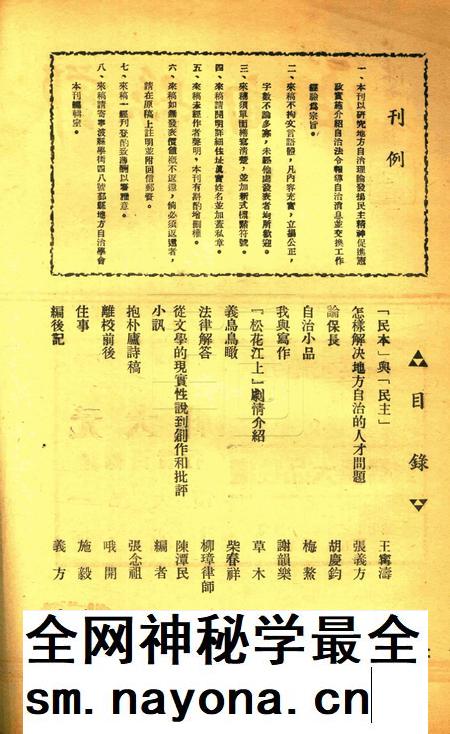 刊例
一、本刊以研究地方自治理論發揚民主精神促進憲
政實施介紹自治法令報導自治消息並交換工作
經驗為宗旨。
二、來稿不拘文言語體，凡內容充實，立場公正，
字數不論多寡，未經他處發表者均所歡迎。
三、來稿須單面繕寫清楚，並加新式標點符號。
四、來稿請開明詳細住址真實姓名並加蓋私章。
五、來稿未經作者聲明，本刊有斟酌增刪權。
六、來稿如無發表價值概不返還，倘必須返還者，
請在原稿上註明並附回信郵費。
七、來稿一經刊登酌致薄酬以答雅意。
八、來稿請寄寧波縣學街四八號鄞縣地方自治學會
本刊編輯室。
目錄
「民本」與「民主」 王甯濤
怎樣解決地方自治的人才問題 張義方
論保長 胡慶鈞
自治小品 梅鰲
我與寫作 謝韻樂
『松花江上』劇情介紹 草木
義烏鳥瞰 柴春祥
法律解答 柳璋律師
從文學的現實性說到創作和批評 陳潭民
小訊 編者
抱朴廬詩稿 張念祖
離校前後 哦開
住事 施毅
編後記 義方
全网神秘学最全
sm.nayona.cn